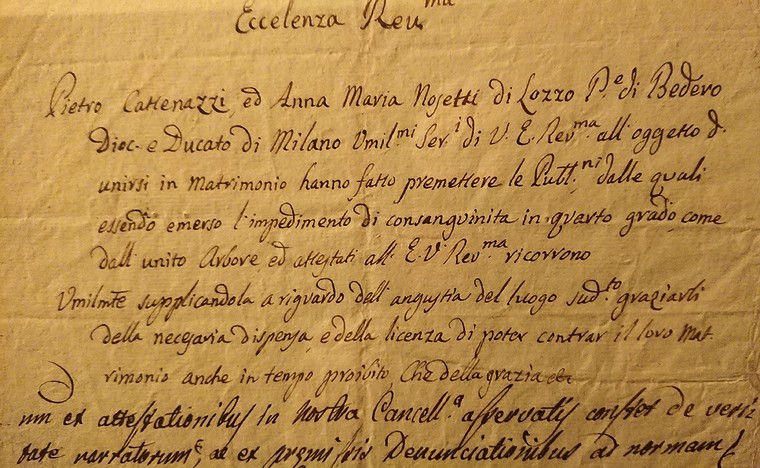 Eccelenza Reu.ma
Pietro Cattenazzi, ed Anna Maria Nosetti di Lozzo P.e di Bedero
Dioc. e Ducato di Milano Vmil.mi Ser.i di V. E. Reu.ma all'oggetto d.
unirsi in Matrimonio hanno fatto premettere le Publ.ni, dalle quali
essendo emerso l'impedimento di consanguinita in quarto grado, come
dall'unito Arbore, ed attestati all' E. V. Reu.ma ricorrono
Vmilmte supplicandola a riguardo dell'angustia del luogo sud.to graziarli
della necesaria dispensa, e della licenza di poter contrar il loro Mat
rimonio anche in tempo proibito, Che della grazia
um ex attestationibus in nostra Cancell.a asservatis constet de veri
tate narratorum, ac ex premissis Denunciationibus ad normam